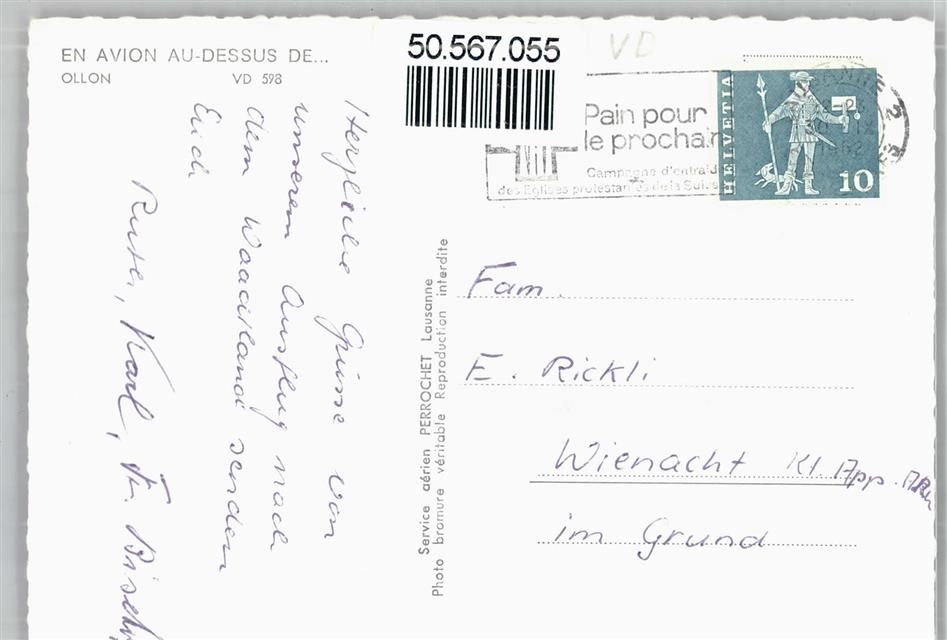 EN AVION AU-DESSUS DE...
OLLON VD 598
50.567.055
VD
Pain pour
le prochain
Campagne d'entraide
des Eglises protestantes de la Suisse
HELVETIA
10
LAUSANNE
1962
Herzliche Grüsse von
unserem Ausflug nach
dem Waadtland senden
Euch
Karl, Fr.
Photo Service aérien PERROCHET Lausanne
Photo bromure véritable Reproduction interdite
Fam.
E. Rickli
Wienacht Kt. App.
im Grund